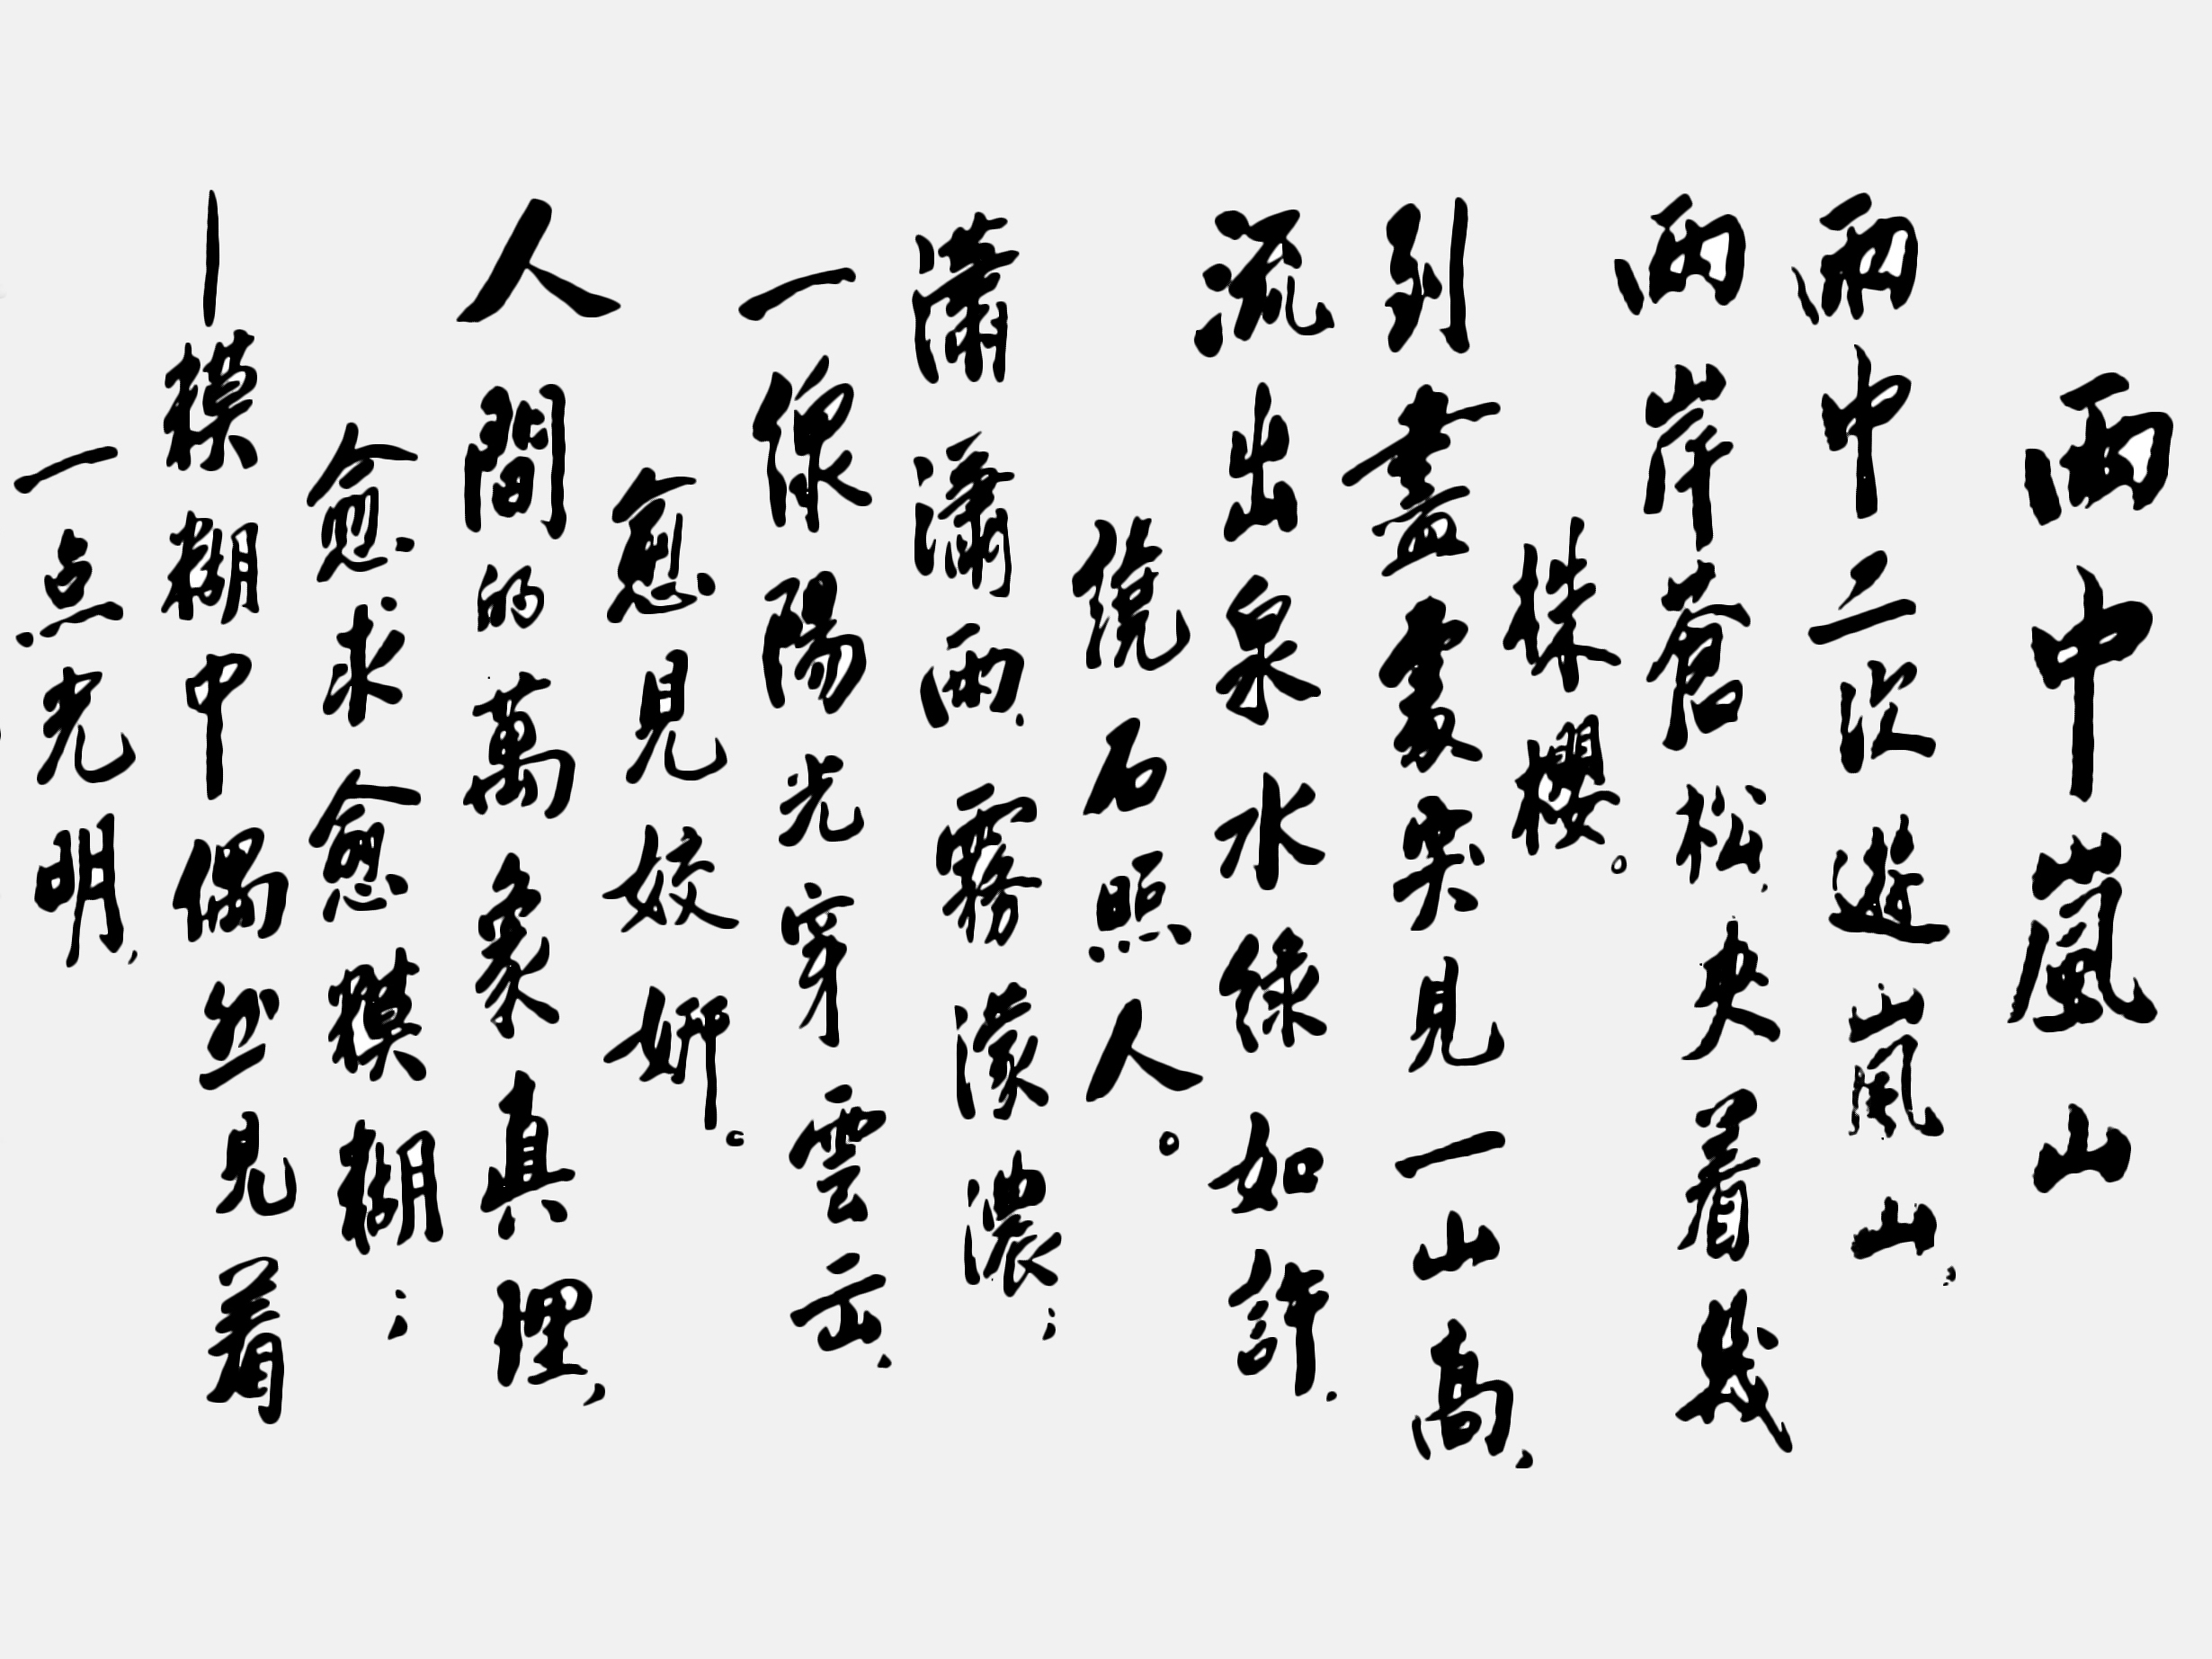 雨中嵐山
雨中二次遊嵐山，
兩岸蒼松，夾着幾
株櫻。
到盡處突見一山高，
流出泉水綠如許，
繞石照人。
瀟瀟雨，霧濛濃；
一線陽光穿雲出，
愈見姣妍。
人間的萬象真理，
愈求愈模糊；
—模糊中偶然見着
一点光明，